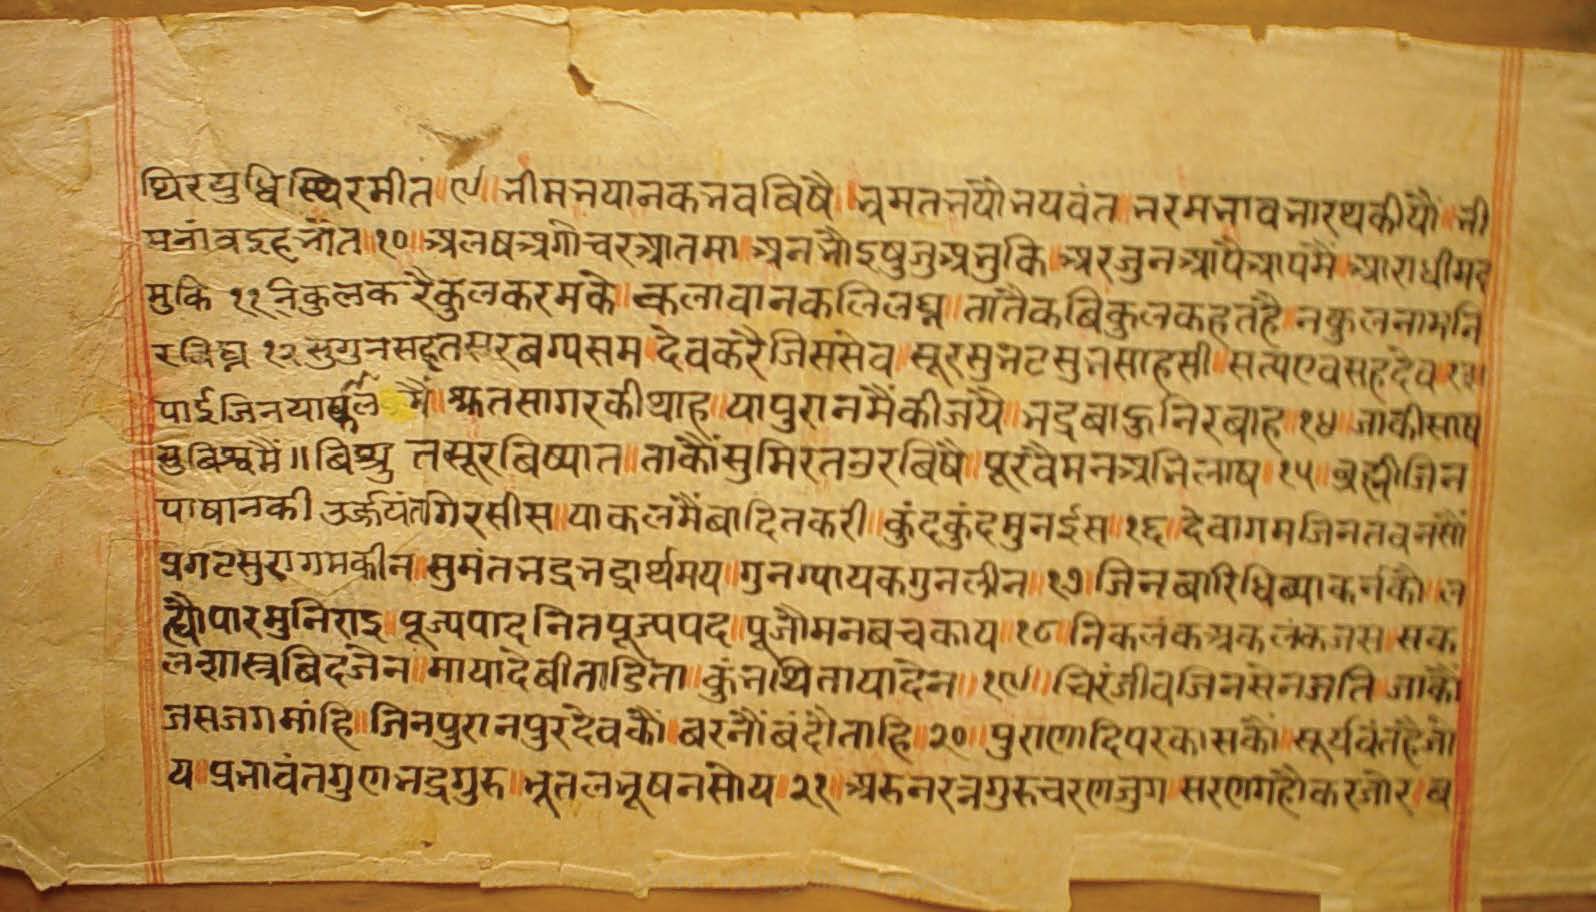 थिरयुधिस्थिरमीत॥९॥भीमभयानकभवबिषै॥भ्रमतभयौभयवंत॥नरमभावभारथकीयौ॥भी
मनांवइहभांत॥१०॥अलषअगौचरआतमा॥अनभौइषुजुअभुकि॥अरजुनआपैआपमैं॥आराधीमद
मुकि ११ निकुलकरैकुलकरमके॥कलावानकलिलघ्न॥तातैकबिकुलकहतहै॥नकुलनामनि
रबिघ्न १२ सुगुनसहतसरबग्यसम॥देवकरैजिससेव॥सूरसुभटसुनसाहसी॥सत्यएवसहदेव १३॥
पाईजिनयाकलमैं॥श्रुतसागरकीथाह॥यापुरानमैंकीजयै॥भद्रबाहुनिरबाह॥१४॥जाकीसाष
सुबिश्वमैं॥बिश्रुतसूरबिष्यात॥ताकौंसुमिरतउरबिषै॥पूरवैमनअभिलाष॥१५॥ब्रह्मीजिन
पाषानकी उर्ज्जयंतगिरसीस॥याकलमैंबादितकरी॥कुंदकुंदमुनईस॥१६॥देवागमजिनतवनसौं
प्रगटसुरागमकीन॥सुमंतभद्रभद्रार्थमय॥गुनग्यायकगुनलीन॥१७॥जिनबारिधिब्याकर्नकौ॥ल
ह्यौपारमुनिराइ॥पूज्यपादनितपूज्यपद॥पूजौमनबचकाय॥१८॥निकलंकअकलंकजस॥सक
लशास्त्रबिदजैन॥मायादेबीताडिता॥कुंभथितायादेन॥१९॥चिरंजीवजिनसेनजति॥जाकौं
जसजगमांहि॥जिनपुरानपुरदेवकौं॥बरनौंबंदौताहि॥२०॥पुराणादिपरकासकौं॥सूर्यवंतहैजो
य॥प्रभावंतगुणभद्रगुरु॥भूतलभूषनसोय॥२१॥अरुनरत्नगुरुचरणजुग॥सरणगहौकरजोर॥ब